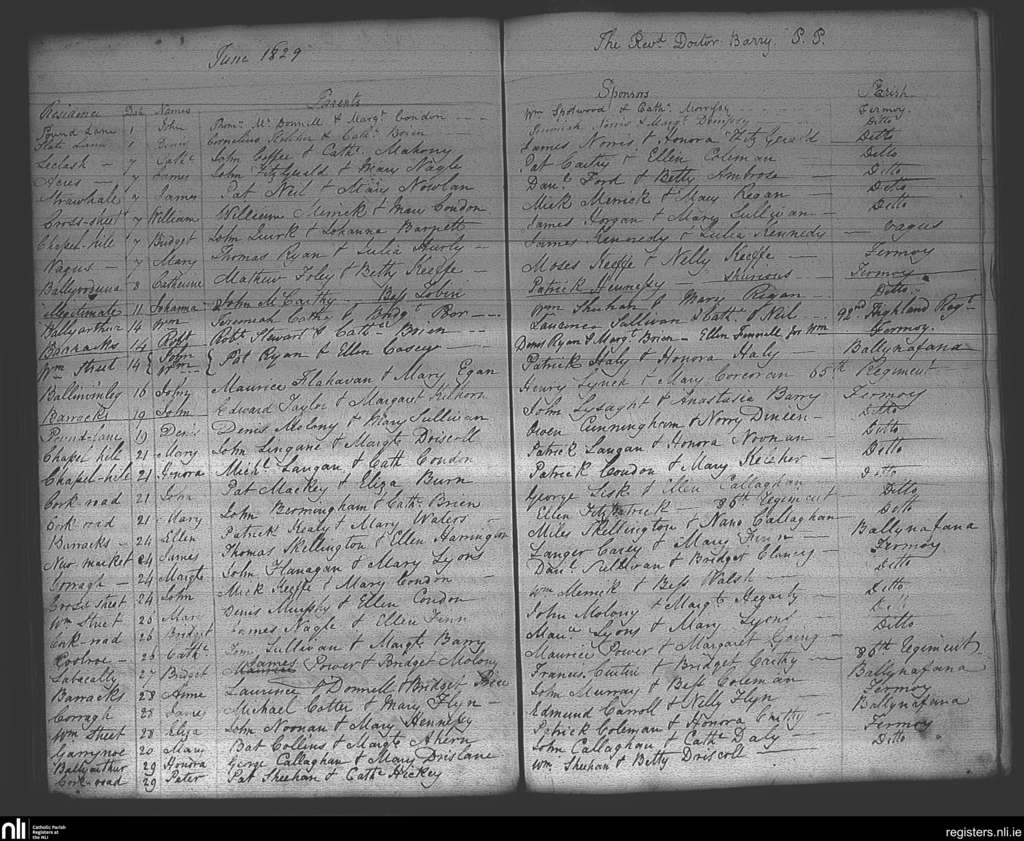 June 1829
The Revd. Doctor Barry P. P.
Residence Names Parents
Pound Lane 1 John Thoms. Mc Donnell & Margt. Condon
1 Cornelius Kelcher & Cathe. Brien
Leclash 7 John Coffee & Cathe. Mahony
Acres 7 James John FitzGerald & Mary Nagle
Strawhale 7 James Pat Neil & Mary Nowlan
Cross-street 7 William William Merrick & Mary Condon
Chapel-hill 7 Bridget John Quirk & Johanna Barrett
Vagus 7 Mary Thomas Ryan & Julia Hurly
8 Catherine Mathew Foley & Betty Keeffe
Illegitimate 11 Johanna John McCarthy Bess Tobin
Ballyarthur 14 Wm Jeremiah Cathe & Bridgt.
Barracks 14 Robt. Robt. Stewart & Cathe. Brien
Wm Street 14 { John Wm } Pat Ryan & Ellen Casey
Ballinvinley 16 John Maurice Flahavan & Mary Egan
Barracks 19 John Edward Taylor & Margaret Kilhorn
Pound-lane 19 Denis Denis Molony & Mary Sullivan
Chapel hill 21 Mary John Lingane & Margt. Driscoll
Chapel-hill 21 Honora Michl. Langan & Cath Condon
Cork road 21 John Pat Mackey & Eliza Burn
Cork road 21 Mary John Bermingham & Cathe. Brien
Barracks 24 Ellen Patrick Healy & Mary Waters
New market 24 James Thomas Skellington & Ellen Harrington
Corragh 24 Margt. John Flanagan & Mary Lyons
Cross street 24 John Mick Keeffe & Mary Condon
Wm Street 25 Mary Denis Murphy & Ellen Condon
Cork-road 26 Bridgt James Nagle & Ellen Finn
26 Cathe. Sullivan & Margt. Barry
Labacally 27 Bridget James Power & Bridget Molony
Barracks 28 Anne Laurence O'Donnell & Bridget
Corragh 28 James Michael Cotter & Mary Flyn
Wm Street 28 Eliza John Noonan & Mary Hennessy
Garrynoe 20 Mary Bat Collins & Margt. Ahern
Ballyarthur 29 Honora George Callaghan & Mary Drislane
Cork-road 29 Peter Pat Sheehan & Cathe Hickey
Sponsors Parish
Wm Spotswood & Cathe. Morrissy Fermoy
Norris & Margt. Dempsey Ditto
James Norris & Honora FitzGerald Ditto
Pat Carthy & Ellen Coleman Ditto
Danl. Ford & Betty Ambrose Ditto
Mick Merrick & Mary Regan Ditto
James Horgan & Mary Sullivan Ditto
James Kennedy & Julia Kennedy Vagus
Moses Keeffe & Nelly Keeffe Fermoy
Patrick Hennessy Spurious Fermoy
Wm Sheehan & Mary Regan Ditto
Laurence Sullivan & Cathe. O'Neil 92nd Highland Regt.
Denis Ryan & Margt. Brien Ellen Fennell for Wm Fermoy.
Patrick Haly & Honora Haly Ballynafana
Henry Lynch & Mary Corcoran 65th Regiment
John Lysaght & Anastasia Barry Fermoy
Owen Cunningham & Norry Dineen Ditto
Patrick Langan & Honora Noonan Ditto
Patrick Condon & Mary Kelcher Ditto
George Lisk & Ellen Callaghan Ditto
Ellen Fitzpatrick 86th Regiment Ditto
Miles Skellington & Nano Callaghan Ditto
Carey & Mary Finn Ballynafana
Danl. Sullivan & Bridget Clancy Fermoy
Wm Merrick & Bess Walsh Ditto
John Molony & Margt. Hegarty Ditto
Maue. Lyons & Mary Lyons Ditto
Maurice Power & Margaret Going Ditto
Francis & Bridget Carthy 86th Regiment
John Murray & Bess Coleman Ballynafana
Edmund Carroll & Nelly Flyn Fermoy
Patrick Coleman & Honora Ballynafana
John Callaghan & Cathe Daly Fermoy
Wm. Sheehan & Betty Driscoll Ditto
nli
Catholic Parish
Registers at
the NLI
registers.nli.ie